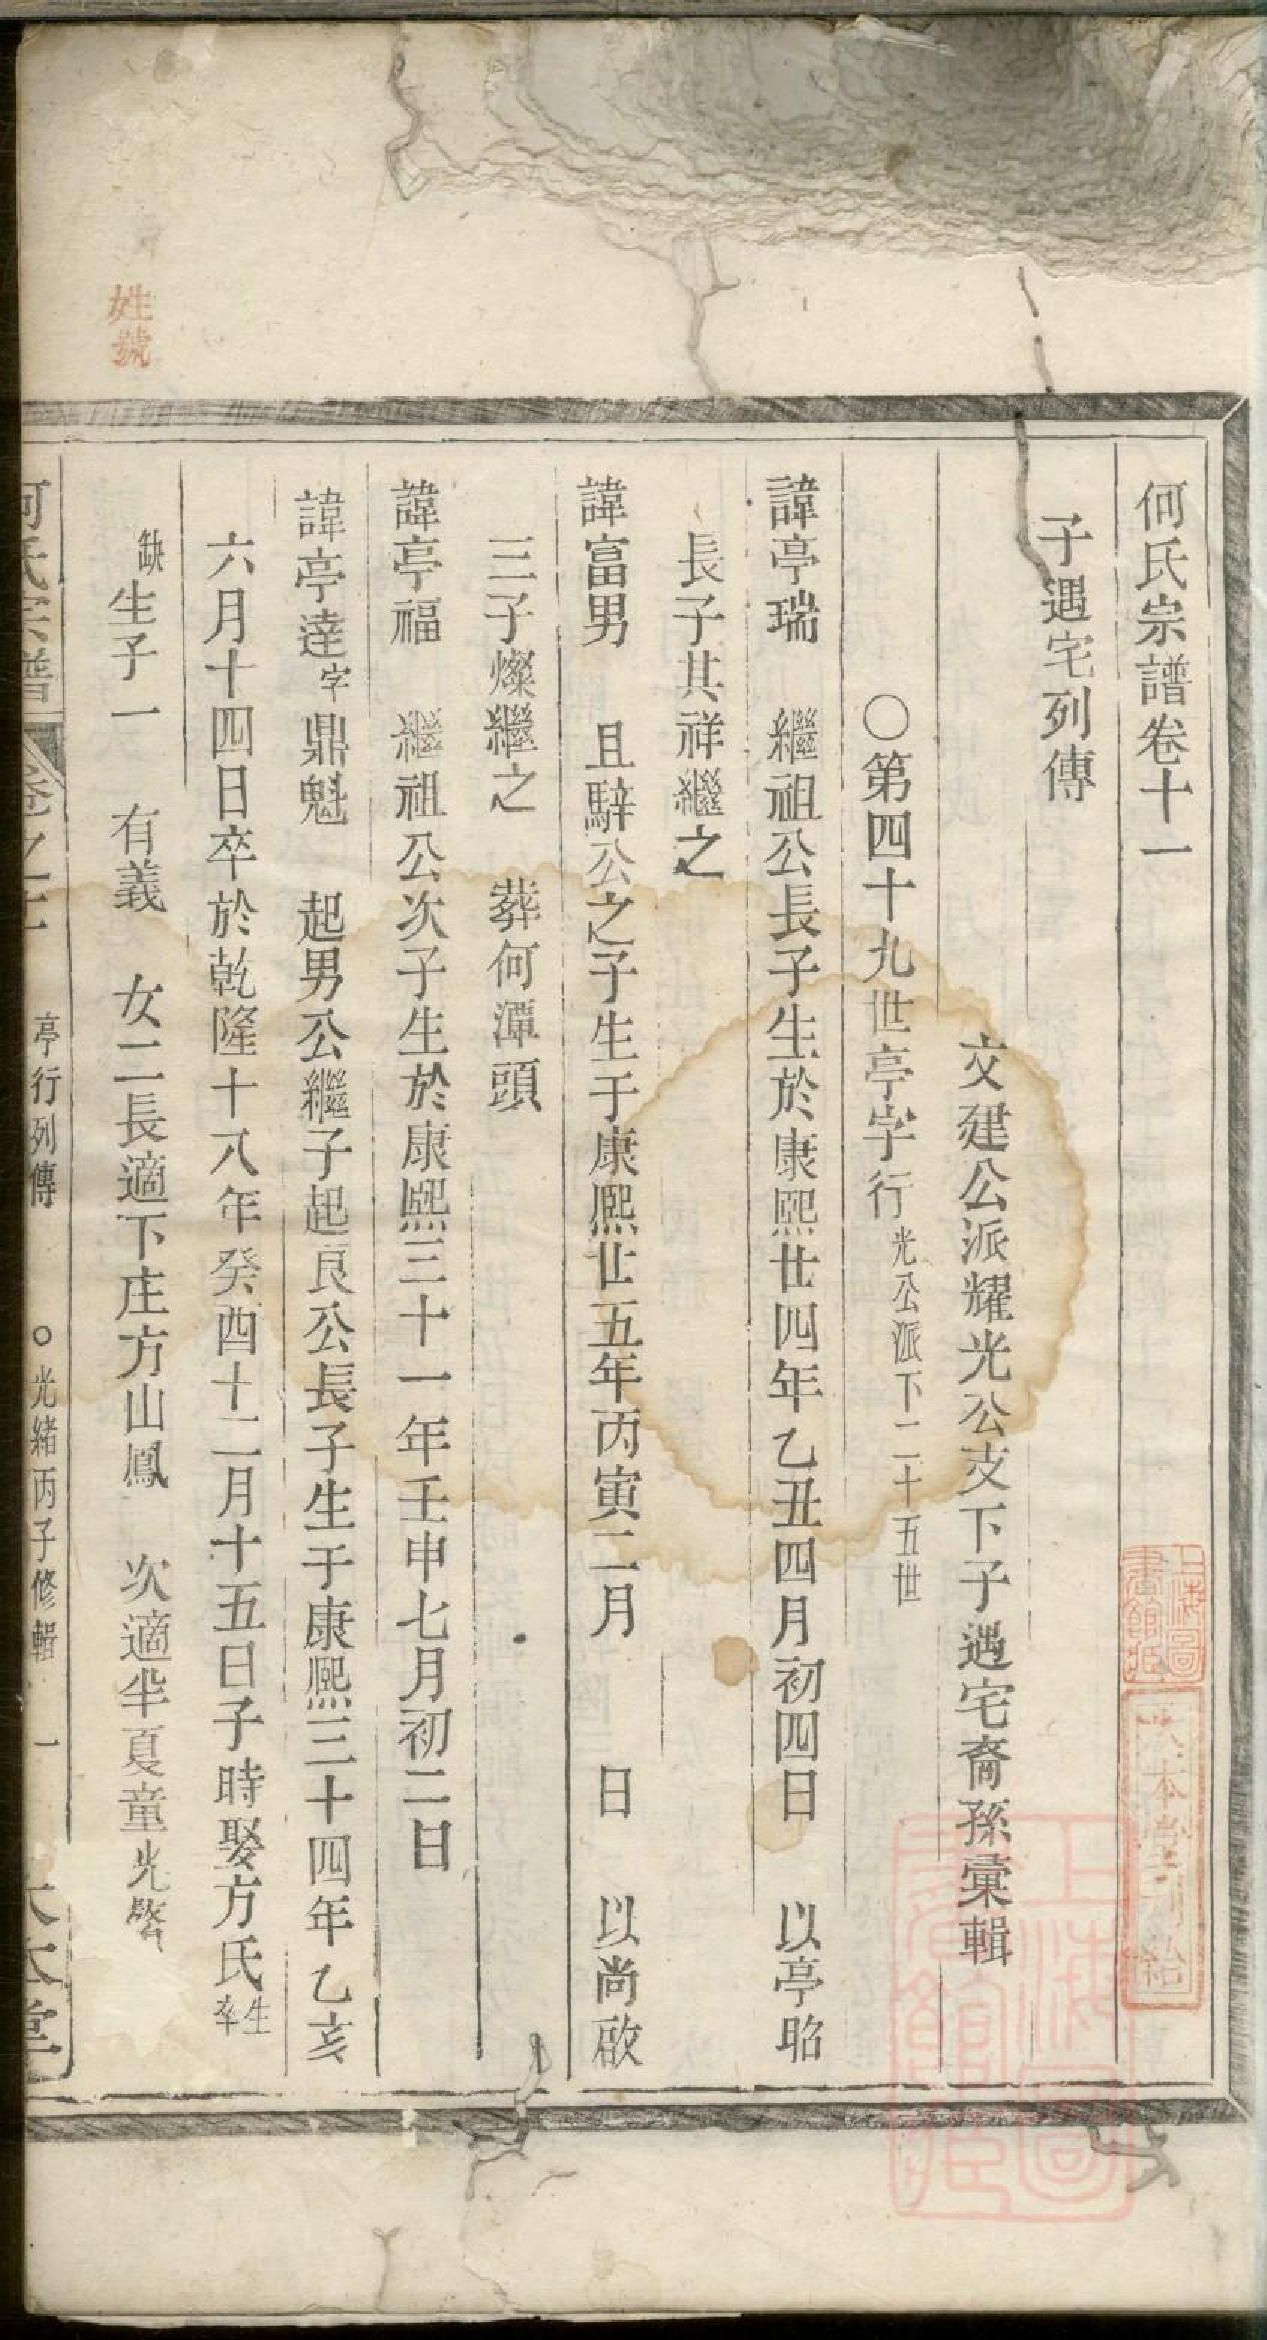 何氏宗譜卷十一
子遇宅列傳
文建公派耀光公支下子遇宅裔孫彙輯
○第四十九世亭字行光公派下二十五世
諱亭瑞 繼祖公長子生於康熙廿四年乙丑四月初四日 以亭昭
長子其祥繼之
諱富男 且騂公之子生于康熙廿五年丙寅二月 日 以尚啟
三子燦繼之 葬何潭頭
諱亭福 繼祖公次子生於康熙三十一年壬申七月初二日
諱亭達字鼎魁 起男公繼子起良公長子生于康熙三十四年乙亥
六月十四日卒於乾隆十八年癸酉十二月十五日子時娶方氏生卒
缺生子一 有義 女二長適下庄方山鳳 次適半夏童光
何氏宗譜 卷之十一 亭行列傳 ○光緒丙子修輯 一 大本堂
姓號
上海圖書館藏
大本堂刊給
上海圖書館藏